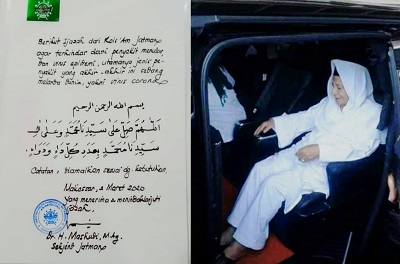 Berikut Ijazah dari Rais 'Am Jatman
agar terhindar dari penyakit menular
dan virus epidemi, utamanya jenis pe-
nyakit yang akhir-akhir ini sedang
melanda dunia, yakni virus corona
بسم الله الرحمن الرحيم
اللهم صل على سيدنا محمد وعلى آل
سيدنا محمد بعدد كل داء ودواء
Catatan, diamalkan sesuai dg kebutuhan,
Makassar, 2 Maret 2020
Yang menerima & menindaklanjuti
Ijazah,
Dr. H. Mashudi, M.Ag.
Sekjend Jatman